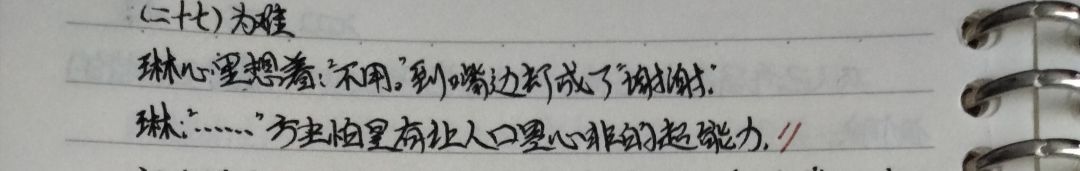 (二十七)为难
琳心里想着:“不用。”到嘴边却成了“谢谢”.
琳:“……”方主怕是有让人口是心非的超能力.